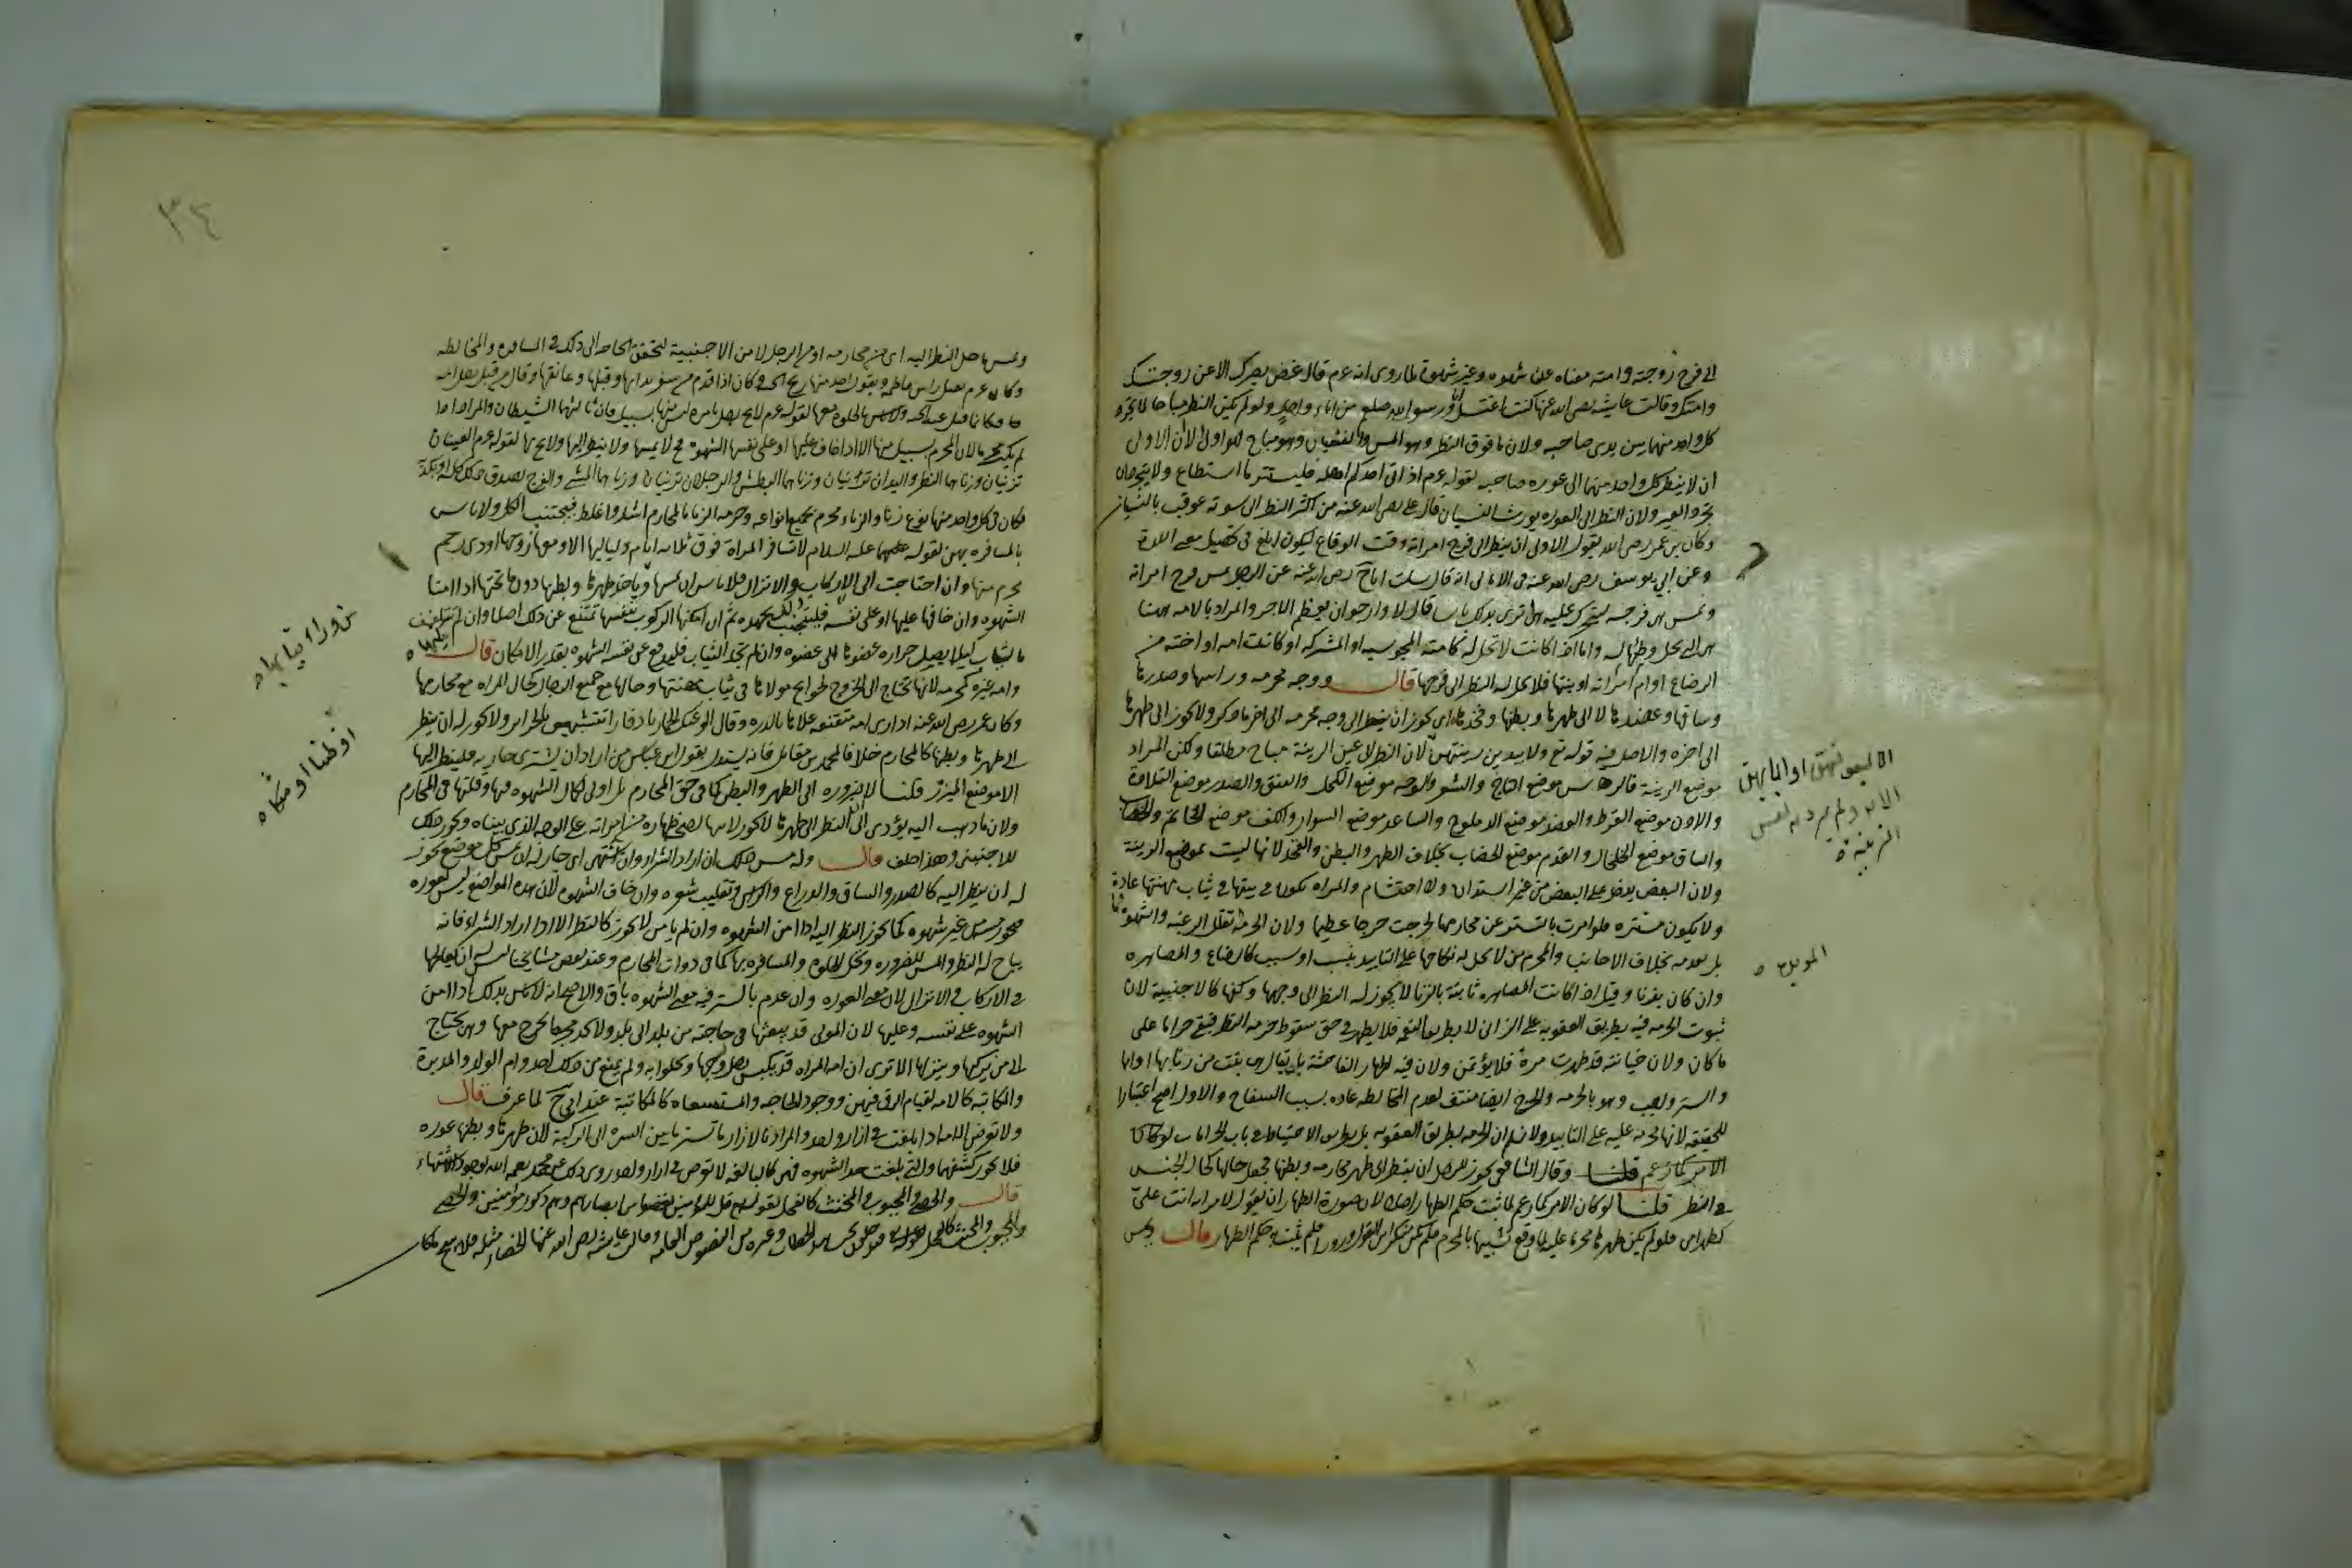 الى فرج زوجته وامته معناه عن شهوه وغير شهوة لما روى انه عم قال غض بصرك الا عن زوجتك
وامتك وقالت عايشه رضى الله عنها كنت اغتسل انا ورسول الله صلعم من اناء واحد ولو لم يكن النظر مباحا لما تجرد
كل واحد منهما بين يدى صاحبه ولان ما فوق النظر وهو المس والغشيان وهو مباح فهو اولى الا ان الاولى
ان لا ينظر كل واحد منهما الى عوره صاحبه لقوله عم اذا اتى احدكم اهله فليستتر ما استطاع ولا يتجردان
تجرد العير ولان النظر الى العوره يورث النسيان قال على رضى الله عنه من اكثر النظر الى سوته عوقب بالنسيان
وكان بن عمر رضى الله يقول الاولى ان ينظر الى فرج امراته وقت الوقاع ليكون ابلغ فى تحصيل معنى اللذة
وعن ابى يوسف رضى الله عنه فى الامالى انه قال سالت ابا ح رضى الله عنه عن الرجل يمس فرج امراته
وتمس هى فرجه ليتحرك عليه هل ترى بذلك باسا قال لا وارجوا ان يعظم الاجر والمراد بالامه ههنا
هى التى يحل وطئها له واما اذا كانت لا تحل له كامته المجوسيه او المشركه او كانت امه او اخته من
الرضاع او ام امراته او بنتها فلا يحل له النظر الى فرجها قال ووجه محرمه وراسها وصدرها
وساقها وعضدها لا الى ظهرها وبطنها وفخذها اى يجوز ان ينظر الى وجه محرمه الى اخر ما ذكر ولا يجوز الى ظهرها
الى اخره والاصل فيه قوله تع ولا يبدين زينتهن لان النظر الى عين الزينة مباح مطلقا ولكن المراد
موضع الزينة فالراس موضع التاج والشعر والوجه موضع الكحل والعنق والصدر موضع القلادة
والاذن موضع القرط والعضد موضع الدملوج والساعد موضع السوار والكف موضع الخاتم والخضاب
والساق موضع الخلخال والقدم موضع الخضاب بخلاف الظهر والبطن والفخذ لانها ليست بموضع الزينة
ولان البعض يدخل على البعض من غير استيذان ولا احتشام والمراه تكون فى بيتها فى ثياب مهنتها عادة
ولا يكون مستتره فلو امرت بالتستر عن محارمها لحرجت حرجا عظيما ولان الحرمة تقلل الرغبه والشهوة
بل تعدمه بخلاف الاجانب والمحرم من لا يحل له نكاحها على التابيد بنسب او سبب كالرضاع والمصاهره
وان كان بالزنا وقيل اذا كانت المصاهره ثابتة بالزنا لا يجوز له النظر الى وجهها وكفها كالاجنبية لان
ثبوت الحرمه فيه بطريق العقوبه على الزانى لا بطريق النعمه فلا يظهر فى حق سقوط حرمه النظر فيبقى حراما على
ما كان ولان خيانته قد ظهرت مرة فلا يؤتمن ولان فيه اظهار الفاحشة بان يقال هى بنت من زنا بها او امها
والستر واجب وهو بالحرمه والحرج ايضا منتف لعدم المخالطه عاده بسبب السفاح والاول اصح اعتبارا
للحقيقه لانها محرمه عليه على التابيد ولا نسلم ان الحرمه بطريق العقوبه بل بطريق الاحتياط فى باب الحرمات
الامر كما زعم قلنا وقال الشافعى يجوز للرجل ان ينظر الى ظهر محارمه وبطنها فجعل حالها كحال الجنس
فى النظر قلنا لو كان الامر كما زعم لما ثبت حكم الظهار اصلا لان صورة الظهار ان يقول لامراته انت على
كظهر امى فلو لم يكن ظهرها محرما عليه لما وقع تشبيها بالمحرم فلم يكن منكرا من القول وزورا فلم يثبت به حكم الظهار قال ويمس
الا لبعولتهن او ابايهن
الايه ولم يرد به نفس
الزينة
ويمس ما حل النظر اليه اى من محارمه او من الرجل لا من الاجنبية لتحقق الحاجه الى ذلك فى المسافره والمخالطه
وكان عم يقبل راس فاطمه ويقول اجد منها ريح الجنه وكان اذا قدم من سفر بدا بها وقبلها وعانقها وقال من قبل رجل امه
فكانما قبل عتبة الجنه ولا باس بالخلوه معها لقوله عم لا يخلون رجل بامراه ليس منها بسبيل فان ثالثهما الشيطان والمراد اذا
لم يكن محرما لان المحرم بسبيل منها الا اذا خاف عليها او على نفسه الشهوة فح لا يمسها ولا ينظر اليها ولا يخلو بها لقوله عم العينان
تزنيان وزناهما النظر واليدان تزنيان وزناهما البطش والرجلان تزنيان وزناهما المشى والفرج يصدق ذلك كله او يكذبه
فكان فى كل واحد منها نوع زنا والزناء محرم بجميع انواعه وحرمه الزنا بالمحارم اشد واغلظ فيجتنب الكل ولا باس
بالمسافره بهن لقوله عليه السلام لا تسافر المراة فوق ثلاثه ايام ولياليها الا ومعها زوجها او ذى رحم
محرم منها وان احتاجت الى الاركاب والانزال فلا باس ان يمسها وياخذ ظهرها وبطنها دون ما تحتها اذا امنا
الشهوه وان خافها عليها او على نفسه فليتجنب بجهده ثم ان امكنها الركوب بنفسها تمتنع عن ذلك اصلا وان لم يمكنها يتلفف
بالثياب كيلا يصل حراره عضوها الى عضوه وان لم يجد الثياب فليدفع عن نفسه الشهوه بقدر الامكان قال
وامه غيره كمحرمه لانها تحتاج الى الخروج لحوايج مولاها فى ثياب مهنتها وحالها مع جميع الرجال كحال المراه مع محارمها
وكان عمر رضى الله عنه اذا راى امه متقنعه علاها بالدره وقال القى عنك الخمار يا دفار اتتشبهين بالحراير ولا يجوز له ان ينظر
الى ظهرها وبطنها كالمحارم خلافا لمحمد بن مقاتل فانه يستدل بقول ابن عباس من اراد ان يشترى جاريه فلينظر اليها
الا موضع الميزر قلنا لا ضروره الى الظهر والبطن كما فى حق المحارم بل اولى لكمال الشهوه فيها وقلتها فى المحارم
ولان ما ذهب اليه يؤدى الى ان النظر الى ظهرها لا يجوز لابنها لصحه ظهاره من امراته على الوجه الذى بيناه ويجوز ذلك
للاجنبى وهذا خلف قال وله مس ذلك ان اراد الشراء وان اشتهى اى جاز له ان يمس كل موضع يجوز
له ان ينظر اليه كالصدر والساق والذراع والراس وتقليب شعره وان خاف الشهوه لان هذه المواضع ليس بعوره
فيجوز مس غير شهوه كما يجوز النظر اليه اذا امن الشهوه وان لم يامن لا يجوز كالنظر الا اذا اراد الشراء فانه
يباح له النظر والمس للضروره ويحل الخلوه والمسافره بها كما فى ذوات المحارم وعند بعض مشايخنا ليس له ان يعالجها
فى الاركاب والانزال لان معنى العوره وان عدم بالستر فيه معنى الشهوه باق والاصح انه لا باس بذلك اذا امن
الشهوه على نفسه وعليها لان المولى قد يبعثها فى حاجته من بلد الى بلد ولا تجد محرما تخرج معها وهى تحتاج
الى من يركبها وينزلها الا ترى ان امه المراه قد تكبس رجل زوجها وتخلوا به ولم يمنع من ذلك احد وام الولد والمدبرة
والمكاتبه كالامه لقيام الرق فيهن ووجود الحاجه والمستسعاه كالمكاتبة عند ابى ح لما عرف قال
ولا تعرض الامه اذا بلغت فى ازار واحد والمراد بالازار ما تستر ما بين السره الى الركبة لان ظهرها وبطنها عوره
فلا يجوز كشفهما والتى بلغت حد الشهوه فهى كالبالغه لا تعرض فى ازار واحد روى ذلك عن محمد رحمه الله لوجود الاشتهاء
قال والخصى والمجبوب والمخنث كالفحل لقوله تع قل للمؤمنين يغضوا من ابصارهم وهم ذكور مؤمنين والخصى
والمجبوب والمخنث كالفحل فيدخلون تحت هذا الخطاب وغيره من النصوص العامه وقالت عايشه رضى الله عنها الخصاء مثله فلا يبيح ما كان
من وراء ثيابها
او ظنا او شكا
٣٤